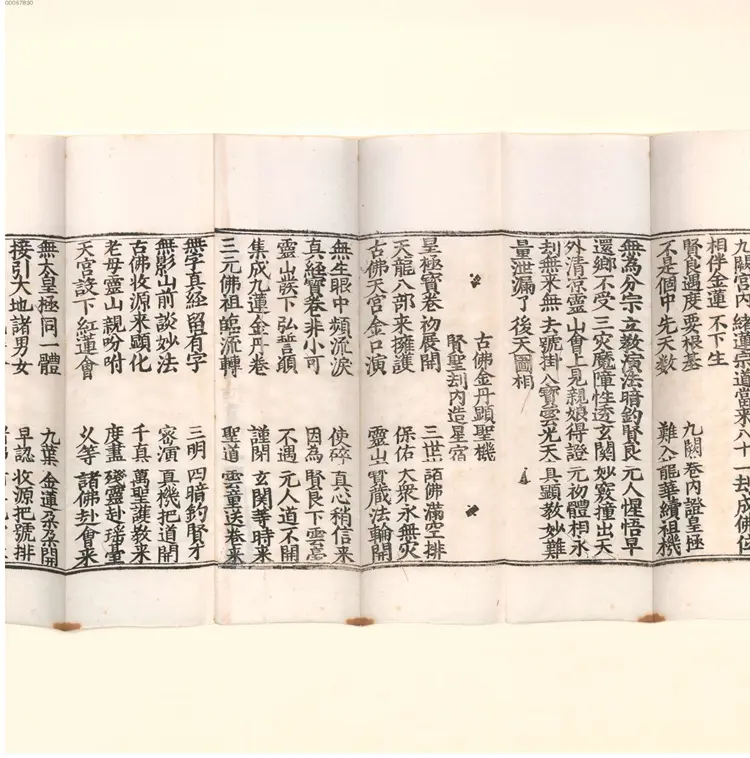 00057830
九闕宮內 緒蓮宗道當来八十一劫成佛位
相伴金蓮 不下生
賢良過度要根基 九闕卷內證皇極
不是個中先天数 難念龍華續祖機
無為分宗立教演法暗釣賢良 元人惺悟早
還鄉不受三灾魔障性透玄關 妙竅撞出天
外清凉靈山會上見親娘得證 元初體相永
刦無来無去號掛八寶雲光天 具顯教妙難
量泄漏了後天圖相
古佛金丹顯聖機
賢聖刦內造星宿
皇極寶卷初展開 三世諸佛滿空排
天龍八部来擁護 保佑大衆永無灾
古佛天宮金口演 靈山寶藏法輪開
無生眼中頻流淚 使碎真心稍信来
真經寶卷非小可 因為賢良下雲
靈山説下弘誓願 不遇元人道不開
集成九蓮金丹卷 謹関玄関等時来
三元佛祖臨流轉 聖道雲童送卷来
無字真經留有字 三明四暗釣賢才
無影山前談妙法 密演真機把道開
古佛收源来顯化 千真萬聖護教来
老母靈山親吩咐 度盡殘靈赴瑤臺
天宮設下紅蓮會 乆等諸佛赴會来
無太皇極同一體 九葉金蓮朶朶開
接引大地諸男女 早認收源把號排